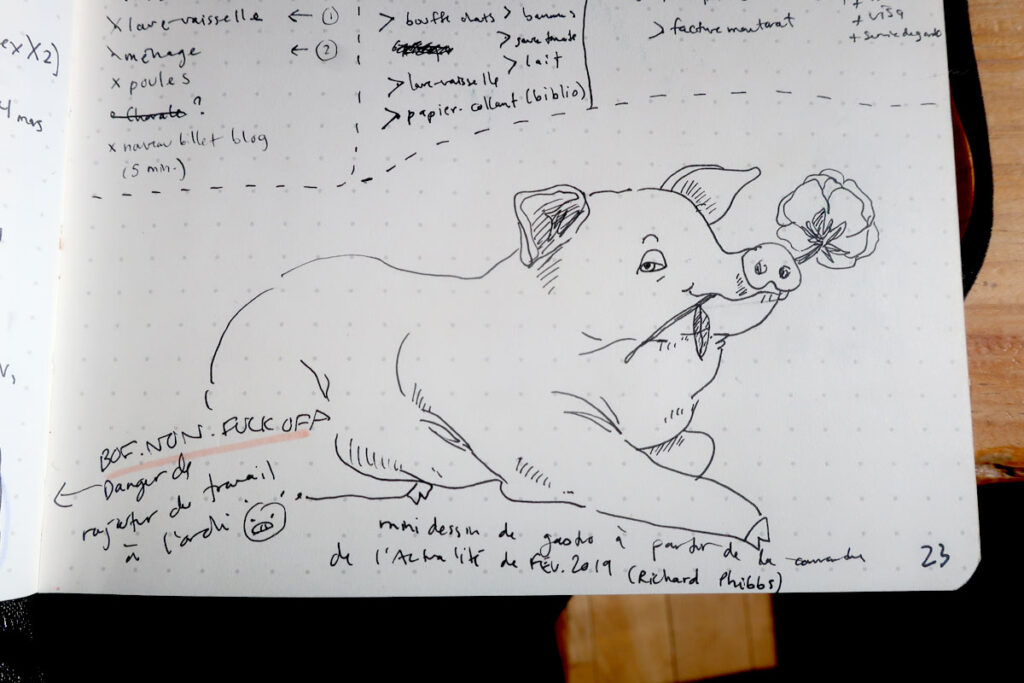 ex X2]
4 mars
x lave-vaisselle ← ①
x ménage ← ②
x poules
Chorale ?
x nouveau billet blog
(5 min.)
> bouffe chats
> lave-vaisselle
> papier-collant (biblio)
> bananes
> lait
> facture
+ VISA
BOF. NON. FUCK OFF
Danger de
rajouter du travail
à l'ardi
mini dessin de gastro à partir de la
de l'Actualité de Fév. 2019 (Richard Phibbs)
23